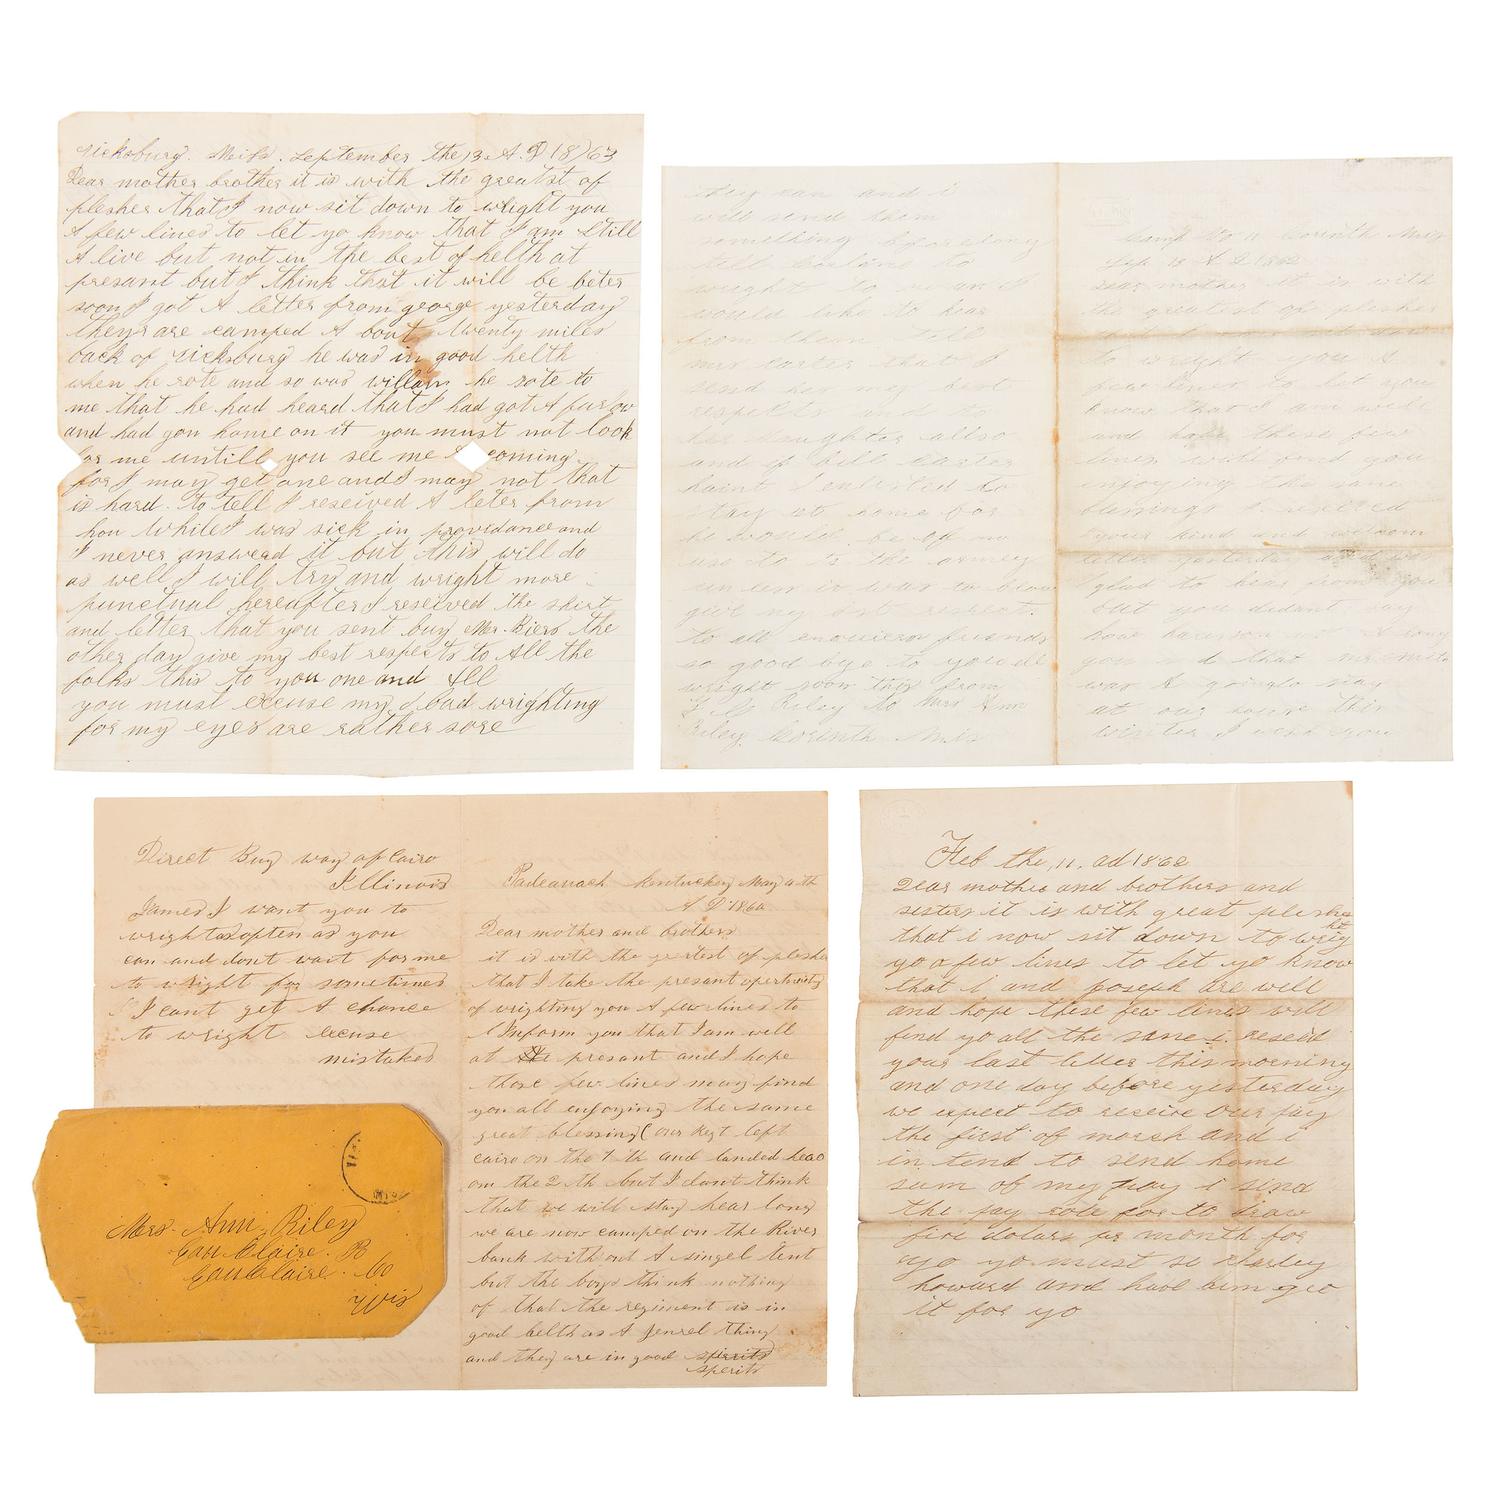 Vicksburg. Miss. September the 13 A.D 1863
Dear mother brother it is with the greatest of
plesher that I now sit down to wright you
A few lines to let yo know that I am Still
A live but not in the best of helth at
presant but I think that it will be beter
soon I got A letter from george yesterday
they are camped A bout twenty miles
back of vicksburg he was in good helth
when he rote and so was willam he rote to
me that he had heard that I had got A furlow
and had gon home on it you must not look
for me untill you see me A coming
for I may get one and I may not that
is hard to tell I reseived A leter from
hou while I was sick in providance and
I never answeard it but this will do
as well I will try and wright more
punctual hereafter I reserved the shirt
and letter that you sent buy Mr. Biers the
other day give my best respects to All the
folks this to you one and All
you must excuse my bad wrighting
for my eyes are rather sore
they can and i
will send them
something before long
tell to
wright to me an I
would like to hear
from them tell
mrs carter that I
send her my best
respects and to
her daughter allso
and if bill carter
haint enlisted to
stay at home for
he would be of no
use to the armey
unless it was to blow
give my best respects
to all enquiren friends
so good bye to you all
wright soon this from
Riley to Mrs Ann
Riley Corinth Miss
Camp No 11 Corinth Miss
Sep. 18 A D 1862
Dear mother it is with
the greatest of plesher
that
to wright you A
few lines to let you
know that I am well
and hope these few
lines will find you
enjoying the same
blessings I received
your kind and welcom
letter yesterday and was
glad to hear from you
but you didant say
how harrison
you and that
was A goingto stay
at our house this
winter I wish you
Direct Buy way of Cairo
Illinois
James I want you to
wright as often as you
can and dont wait for me
to wright for sometimes
I cant get A chance
to wright excuse
mistakes
Padeanach Kentuckey May 4 th
A D 186
Dear mother and brothers
it is with the gretest of plesher
that I take the presant opertunity
of wrighting you A few lines to
Inform you that I am well
at presant and I hope
those few lines may find
you all enjoying the same
great blessing our Regt left
cairo on the 1 th and landed heao
on the 2 th but I dont think
that we will stay hear long
we are now camped on the River
bank without A singel tent
but the boys think nothing
of that the regiment is in
good helth as A genrel thing
and they are in good spirits
sperits
Mrs. Ann. Riley
Eau Claire. P
Eau Claire. Co
Wis
WIS
Feb the, 11. ad 1862
Dear mother and brothers and
sisters it is with great plesher
that i now sit down to wright
yo a few lines to let yo know
that i and joseph are well
and hope these few lines will
find yo all the same i reseid
your last letter this morning
and one day before yesterday
we expect to receive our pay
the first of march and i
in tend to send home
sum of my pay i sind
the pay role for to draw
five dolars pr month for
yo yo must se Harley
howard and have him geo
it for yo